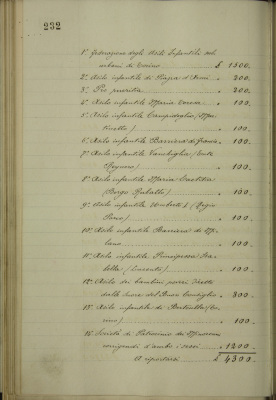 232
1° Federazione degli Asili Infantili sub
urbani di Torino £ 1500.
2° Asilo infantile di Piazza d'Armi " 200.
3° Pro pueritia " 200.
4° Asilo infantile " 100.
5° Asilo infantile Campidoglio (Mar
tinetto) " 100.
6° Asilo infantile Barriera di Francia " 100.
7° Asilo infantile Vanchiglia (Ente
" 100.
8° Asilo infantile Maria Cristina
(Borgo Rubatto) " 100.
9° Asilo infantile Umberto I (Regio
Parco) " 100.
10° Asilo infantile Barriera di Mi
lano " 100.
11° Asilo infantile Principessa Isa
bella (Lucento) " 100.
12° Asilo dei bambini poveri diretto
dalle Suore del Buon Consiglio " 800.
13° Asilo infantile di Bertoulla (To
rino) " 100.
14° Società di Patrocinio dei Minorenni
corrigendi d'ambo i sessi " 1200
A riportarsi £ 4300.